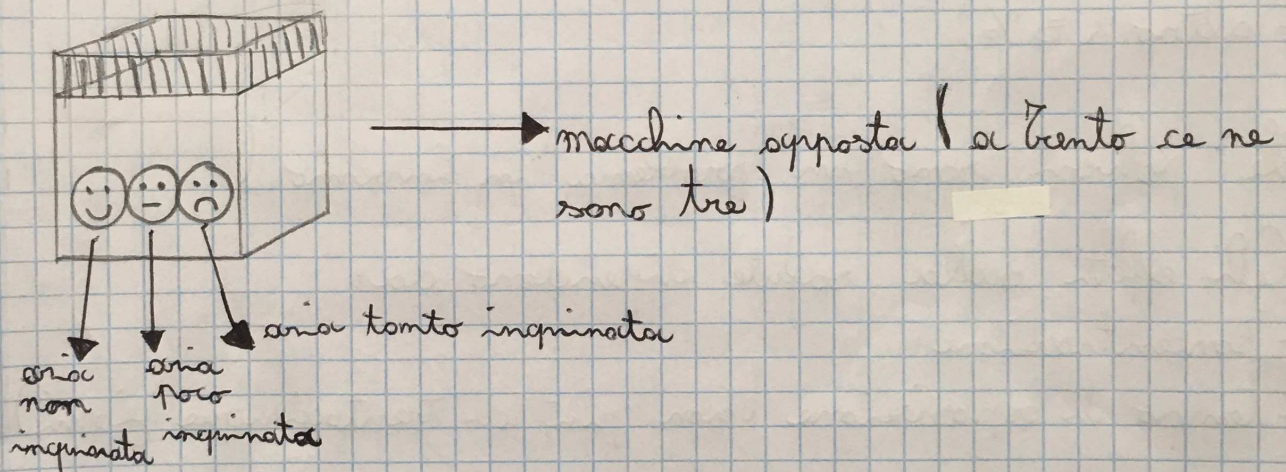 macchine apposta (a Trento ce ne
sono tre)
aria tanto inquinata
aria
non
inquinata
aria
poco
inquinata